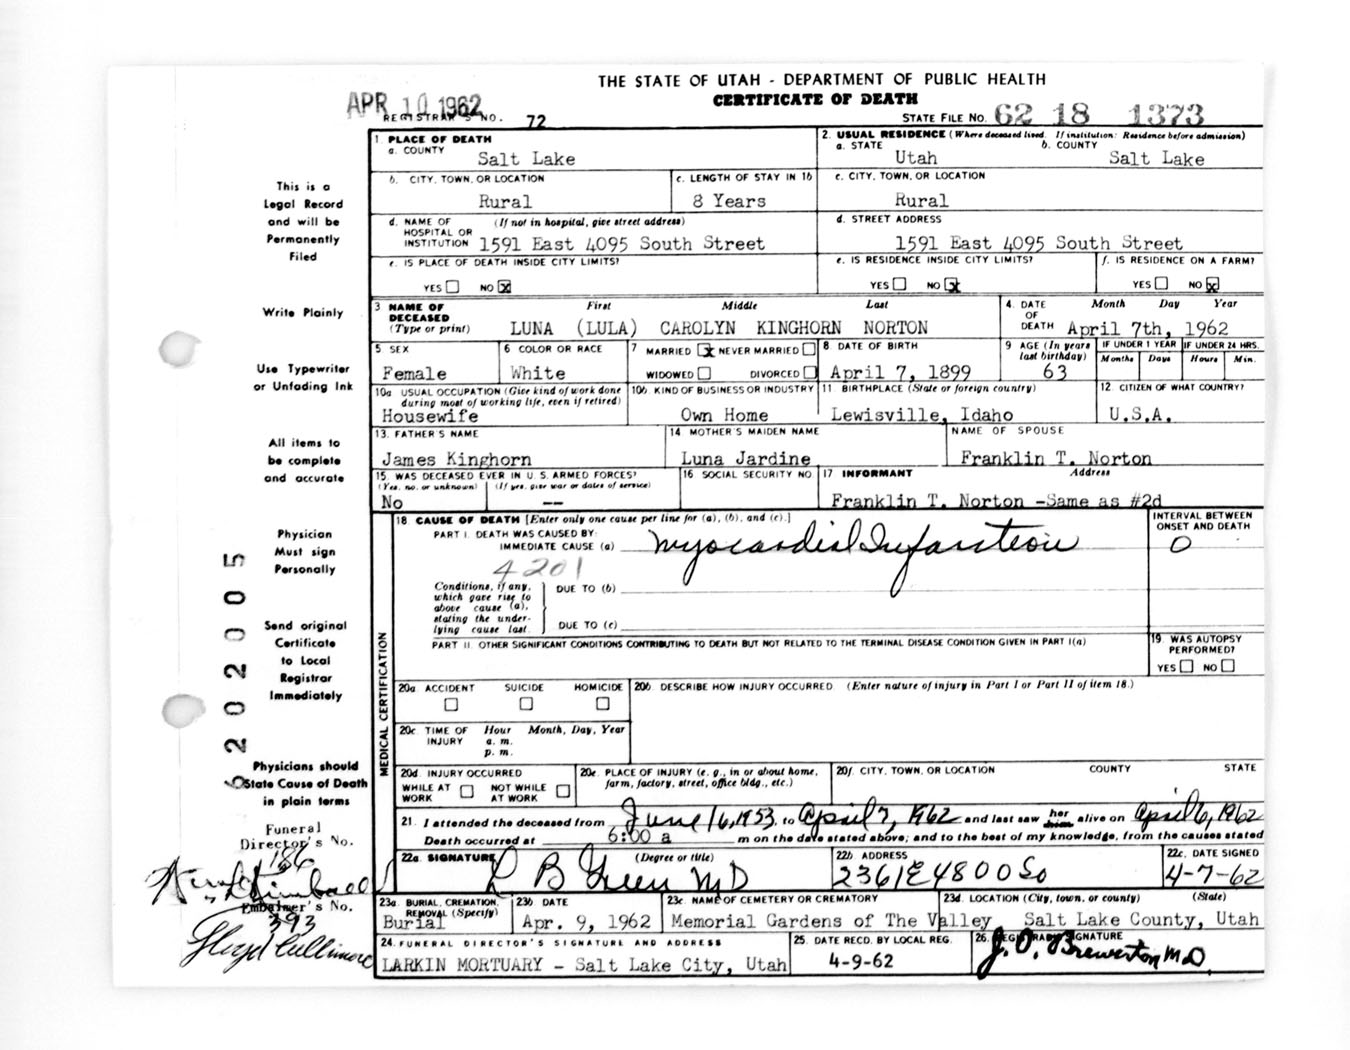 THE STATE OF UTAH - DEPARTMENT OF PUBLIC HEALTH
CERTIFICATE OF DEATH
APR 10 1962
REGISTRAR'S NO. 72
STATE FILE NO. 62 18 1373
1 PLACE OF DEATH
a. COUNTY
Salt Lake
2. USUAL RESIDENCE (Where deceased lived. If institution: Residence before admission)
a. STATE b. COUNTY
Utah Salt Lake
b. CITY, TOWN, OR LOCATION
Rural
c. LENGTH OF STAY IN 1b
8 Years
c. CITY, TOWN, OR LOCATION
Rural
d. NAME OF HOSPITAL OR INSTITUTION (If not in hospital, give street address)
1591 East 4095 South Street
d. STREET ADDRESS
1591 East 4095 South Street
e. IS PLACE OF DEATH INSIDE CITY LIMITS?
YES NO x
e. IS RESIDENCE INSIDE CITY LIMITS?
YES NO x
f. IS RESIDENCE ON A FARM?
YES NO x
3 NAME OF DECEASED (Type or print)
First Middle Last
LUNA (LULA) CAROLYN KINGHORN NORTON
4. DATE OF DEATH
Month Day Year
April 7th, 1962
5 SEX
Female
6 COLOR OR RACE
White
7 MARRIED x NEVER MARRIED
WIDOWED DIVORCED
8 DATE OF BIRTH
April 7, 1899
9 AGE (In years last birthday)
63
IF UNDER 1 YEAR
Months Days
IF UNDER 24 HRS.
Hours Min.
10a USUAL OCCUPATION (Give kind of work done during most of working life, even if retired)
Housewife
10b KIND OF BUSINESS OR INDUSTRY
Own Home
11. BIRTHPLACE (State or foreign country)
Lewisville, Idaho
12. CITIZEN OF WHAT COUNTRY?
U.S.A.
13. FATHER'S NAME
James Kinghorn
14 MOTHER'S MAIDEN NAME
Luna Jardine
NAME OF SPOUSE
Franklin T. Norton
15 WAS DECEASED EVER IN U. S. ARMED FORCES?
(Yes, no, or unknown) (If yes, give war or dates of service)
No --
16 SOCIAL SECURITY NO
17 INFORMANT Address
Franklin T. Norton -Same as #2d
MEDICAL CERTIFICATION
18 CAUSE OF DEATH [Enter only one cause per line for (a), (b), and (c).]
PART I. DEATH WAS CAUSED BY:
IMMEDIATE CAUSE (a) Myocardial Infarction
INTERVAL BETWEEN ONSET AND DEATH
0
4201
Conditions, if any, which gave rise to above cause (a), stating the underlying cause last.
DUE TO (b)
DUE TO (c)
PART II. OTHER SIGNIFICANT CONDITIONS CONTRIBUTING TO DEATH BUT NOT RELATED TO THE TERMINAL DISEASE CONDITION GIVEN IN PART I(a)
19. WAS AUTOPSY PERFORMED?
YES NO
20a ACCIDENT SUICIDE HOMICIDE
20b. DESCRIBE HOW INJURY OCCURRED. (Enter nature of injury in Part I or Part II of item 18.)
20c TIME OF INJURY
Hour Month, Day, Year
a. m.
p. m.
20d. INJURY OCCURRED
WHILE AT WORK NOT WHILE AT WORK
20e. PLACE OF INJURY (e. g., in or about home, farm, factory, street, office bldg., etc.)
20f. CITY, TOWN, OR LOCATION COUNTY STATE
21. I attended the deceased from June 16, 1953, to April 7, 1962 and last saw her him alive on April 6, 1962
Death occurred at 6:00 a m on the date stated above; and to the best of my knowledge, from the causes stated
22a. SIGNATURE (Degree or title)
L B Green MD
22b. ADDRESS
2361 E 4800 So
22c. DATE SIGNED
4-7-62
23a. BURIAL, CREMATION, REMOVAL (Specify)
Burial
23b DATE
Apr. 9, 1962
23c. NAME OF CEMETERY OR CREMATORY
Memorial Gardens of The Valley
23d. LOCATION (City, town, or county) (State)
Salt Lake County, Utah
24. FUNERAL DIRECTOR'S SIGNATURE AND ADDRESS
LARKIN MORTUARY - Salt Lake City, Utah
25. DATE RECD. BY LOCAL REG.
4-9-62
26. REGISTRAR'S SIGNATURE
J. O. Brewerton M.D.
This is a
Legal Record
and will be
Permanently
Filed
Write Plainly
Use Typewriter
or Unfading Ink
All items to
be complete
and accurate
Physician
Must sign
Personally
Send original
Certificate
to Local
Registrar
Immediately
Physicians should
State Cause of Death
in plain terms
Funeral
Director's No.
186
Kimball
Embalmer's No.
393
Lloyd Cullimore
202005